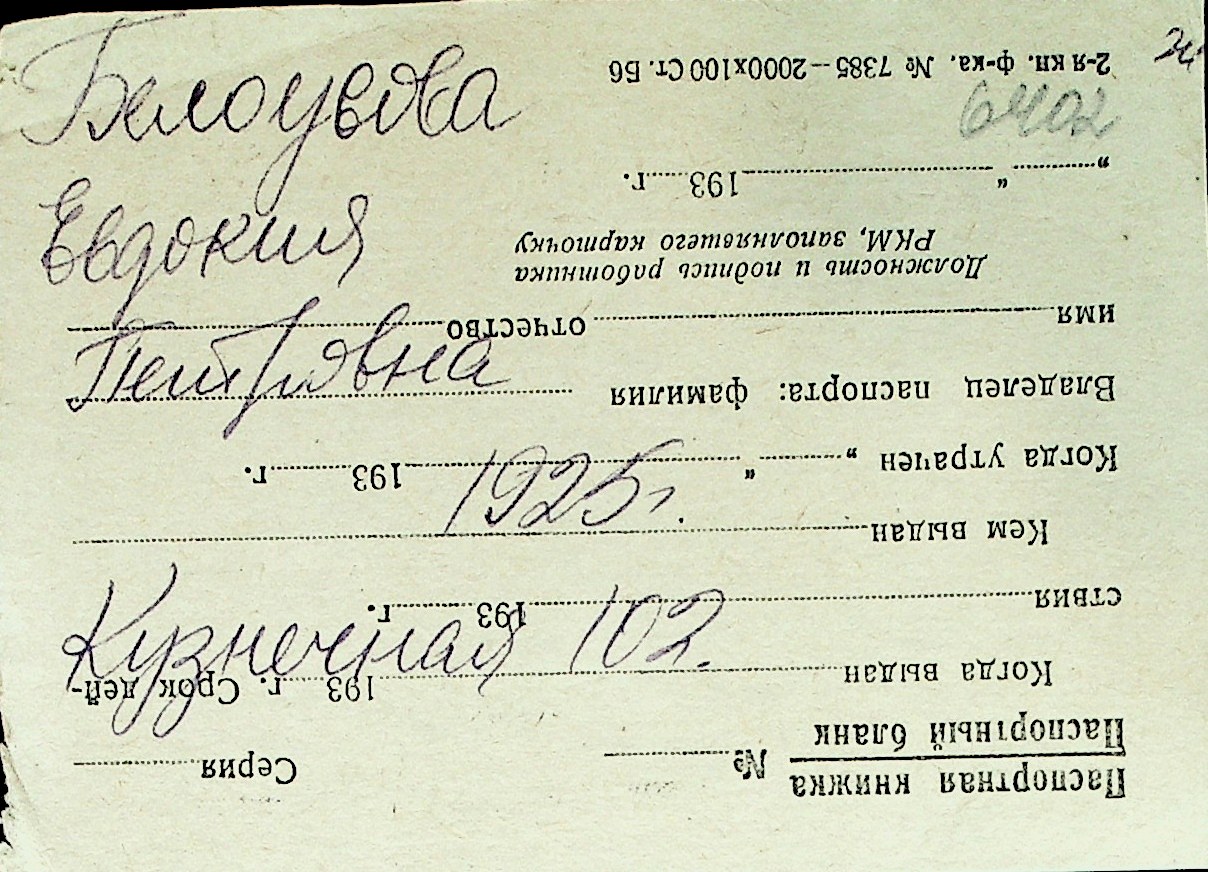 Белоусова
Евдокия
Петровна
1925 г.
Кузнечная 102.
6402
Паспортная книжка № Серия
Паспортный бланк
Когда выдан 193 г. Срок дей-
ствия 193 г.
Кем выдан
Когда утрачен „ “ 193 г.
Владелец паспорта: фамилия
имя отчество
Должность и подпись работника
РКМ, заполнявшего карточку
„ “ 193 г.
2-я кн. ф-ка. № 7385—2000х100 Ст. Б6